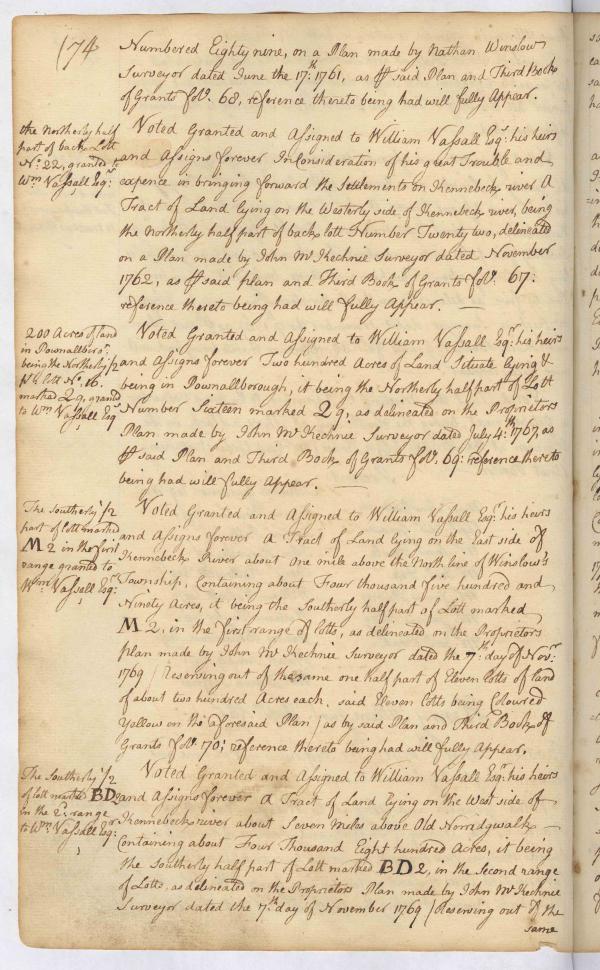 174
Numbered Eighty nine, on a Plan made by Nathan Winslow
Surveyor dated June the 17:th 1761, as ⅌ said Plan and Third Book
of Grants fol:o 68, reference thereto being had will fully Appear.
the Northerly half
part of back Lott
No: 22, granted to
Wm Vassall Esqr:
Voted Granted and Assigned to William Vassall Esqr: his heirs
and Assigns forever In Consideration of his great Trouble and
expence in bringing forward the Settlements on Kennebeck river A
Tract of Land lying on the Westerly side of Kennebeck river, being
the Northerly half part of back lott Number Twenty two, delineated
on a Plan made by John McKechnie Surveyor dated November
1762, as ⅌ said plan and Third Book of Grants fol:o 67:
reference thereto being had will fully Appear. —
200 Acres of land
in Pownallboro:
being the Northerly 1/2
lott No: 16.
marked 2q, grantd
to Wm Vassall Esqr
Voted Granted and Assigned to William Vassall Esqr: his heirs
and Assigns forever Two hundred Acres of Land Situate lying &
being in Pownallborough, it being the Northerly half part of Lott
Number Sixteen marked 2q, as delineated on the Proprietors
Plan made by John McKechnie Surveyor dated July 4:th 1767, as
⅌ said Plan and Third Book of Grants fol:o 69: reference thereto
being had will fully Appear. —
The Southerly 1/2
part of lott marked
M2 in the first
range granted to
Wm Vassall Esqr:
Voted Granted and Assigned to William Vassall Esqr: his heirs
and Assigns forever A Tract of Land lying on the East side of
Kennebeck River about One mile above the North line of Winslow's
Township, Containing about Four thousand five hundred and
Ninety Acres, it being the Southerly half part of Lott marked
M2, in the first range of lotts, as delineated on the Proprietors
plan made by John McKechnie Surveyor dated the 7:th day of Novr:
1769 / Reserving out of the same one half part of Eleven Lotts of land
of about two hundred Acres each, said Eleven Lotts being Coloured
Yellow on the aforesaid Plan / as by said Plan and Third Book of
Grants fol:o 70: reference thereto being had will fully Appear.
The Southerly 1/2
of lott marked BD2
in the 2d: range
to Wm Vassall Esqr:
Voted Granted and Assigned to William Vassall Esqr: his heirs
and Assigns forever A Tract of Land lying on the West side of
Kennebeck river about Seven Miles above Old Norridgwalk —
Containing about Four Thousand Eight hundred Acres, it being
the Southerly half part of Lott marked BD2, in the Second range
of Lotts, as delineated on the Proprietors Plan made by John McKechnie
Surveyor dated the 7:th day of November 1769 / Reserving out of the
same